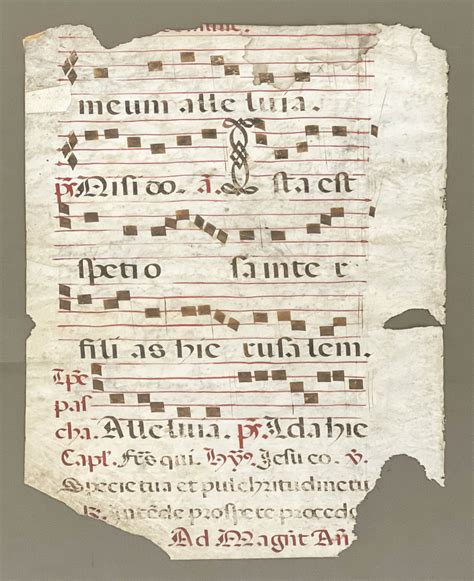 meum alle luia.
ps. Nisi do. a. Ista est
spetio sa inter
fili as hie rusalem.
Tpe
pas
cha. Alleluia. ps. Ida hie
Capl. Frs qui. hyo. Jesu co. v.
Specie tua et pulchritudine tu
R. Intēde prospere procede
Ad Magnt Añ